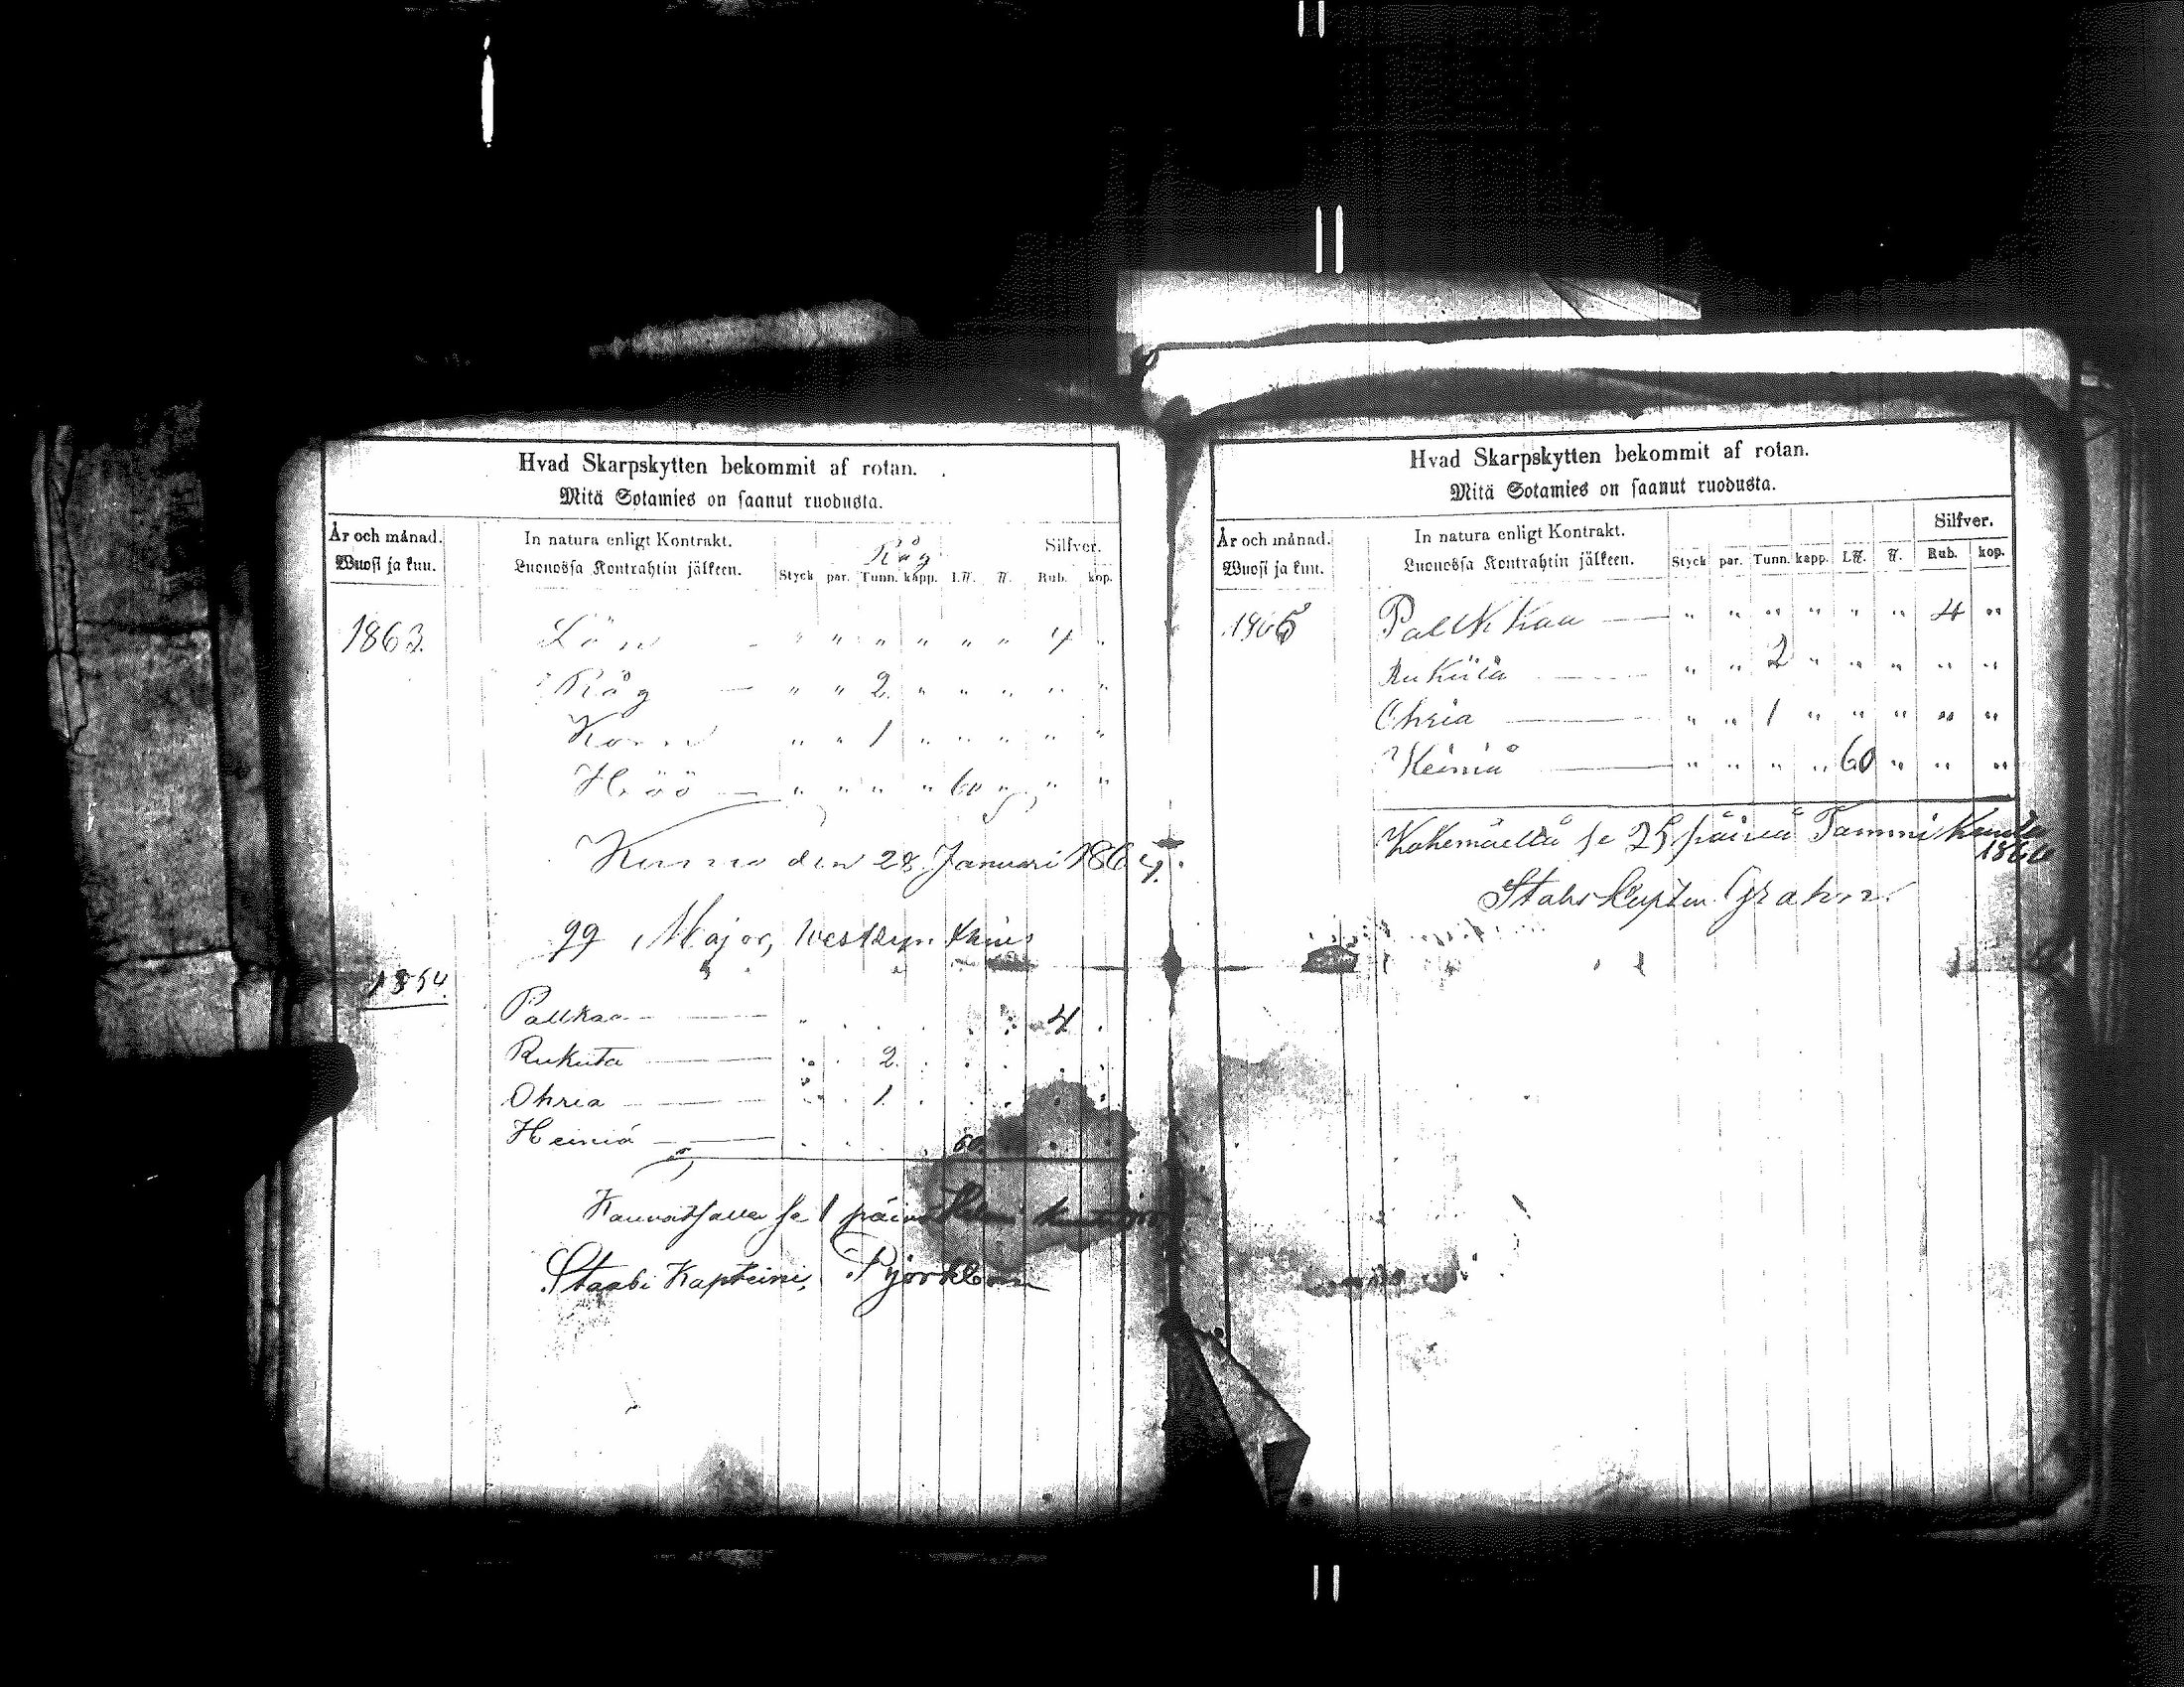 Hvad Skarpskytten bekommit af rotan.
Mitä Sotamies on saanut ruodusta.
År och månad. In natura enligt Kontrakt. Råg Silfver.
Wuosi ja kuu. Luonossa Kontrahtin jälkeen. Styck par. Tunn. kapp. L℔. ℔. Rub. kop.
1863. Lön - " " " " " " 4 "
Råg — " " 2. " " " " "
Korn " " 1 " " " " "
Höö — " " " " 60 " " "
den 28. Januari 1864.
Major,
1864.
Pallkaa — 4
Rukiita — 2.
Ohria — 1.
Heiniä — 60
se 1 päivä
Staabi Kapteini, Pjörklom
Hvad Skarpskytten bekommit af rotan.
Mitä Sotamies on saanut ruodusta.
År och månad. In natura enligt Kontrakt. Silfver.
Wuosi ja kuu. Luonossa Kontrahtin jälkeen. Styck par. Tunn. kapp. L℔. ℔. Rub. kop.
1865 Palkkaa — " " " " " " 4 "
Rukiita — " " 2 " " " " "
Ohria — " " 1 " " " " "
Heiniä — " " " " 60 " " "
Kokemäellä se 25 päivä Tammi Kuuta
1866
Stabs Kapten Grahn.